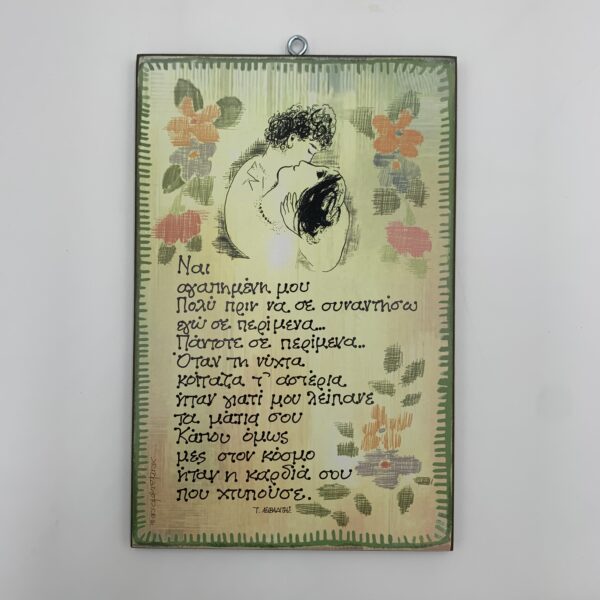 Ναι
αγαπημένη μου
Πολύ πριν να σε συναντήσω
εγώ σε περίμενα...
Πάντοτε σε περίμενα..
Όταν τη νύχτα
κοίταζα τ' αστέρια
ήταν γιατί μου λείπανε
τα μάτια σου
Κάπου όμως
μες στον κόσμο
ήταν η καρδιά σου
που χτυπούσε.
Τ. ΛΕΙΒΑΔΙΤΗΣ